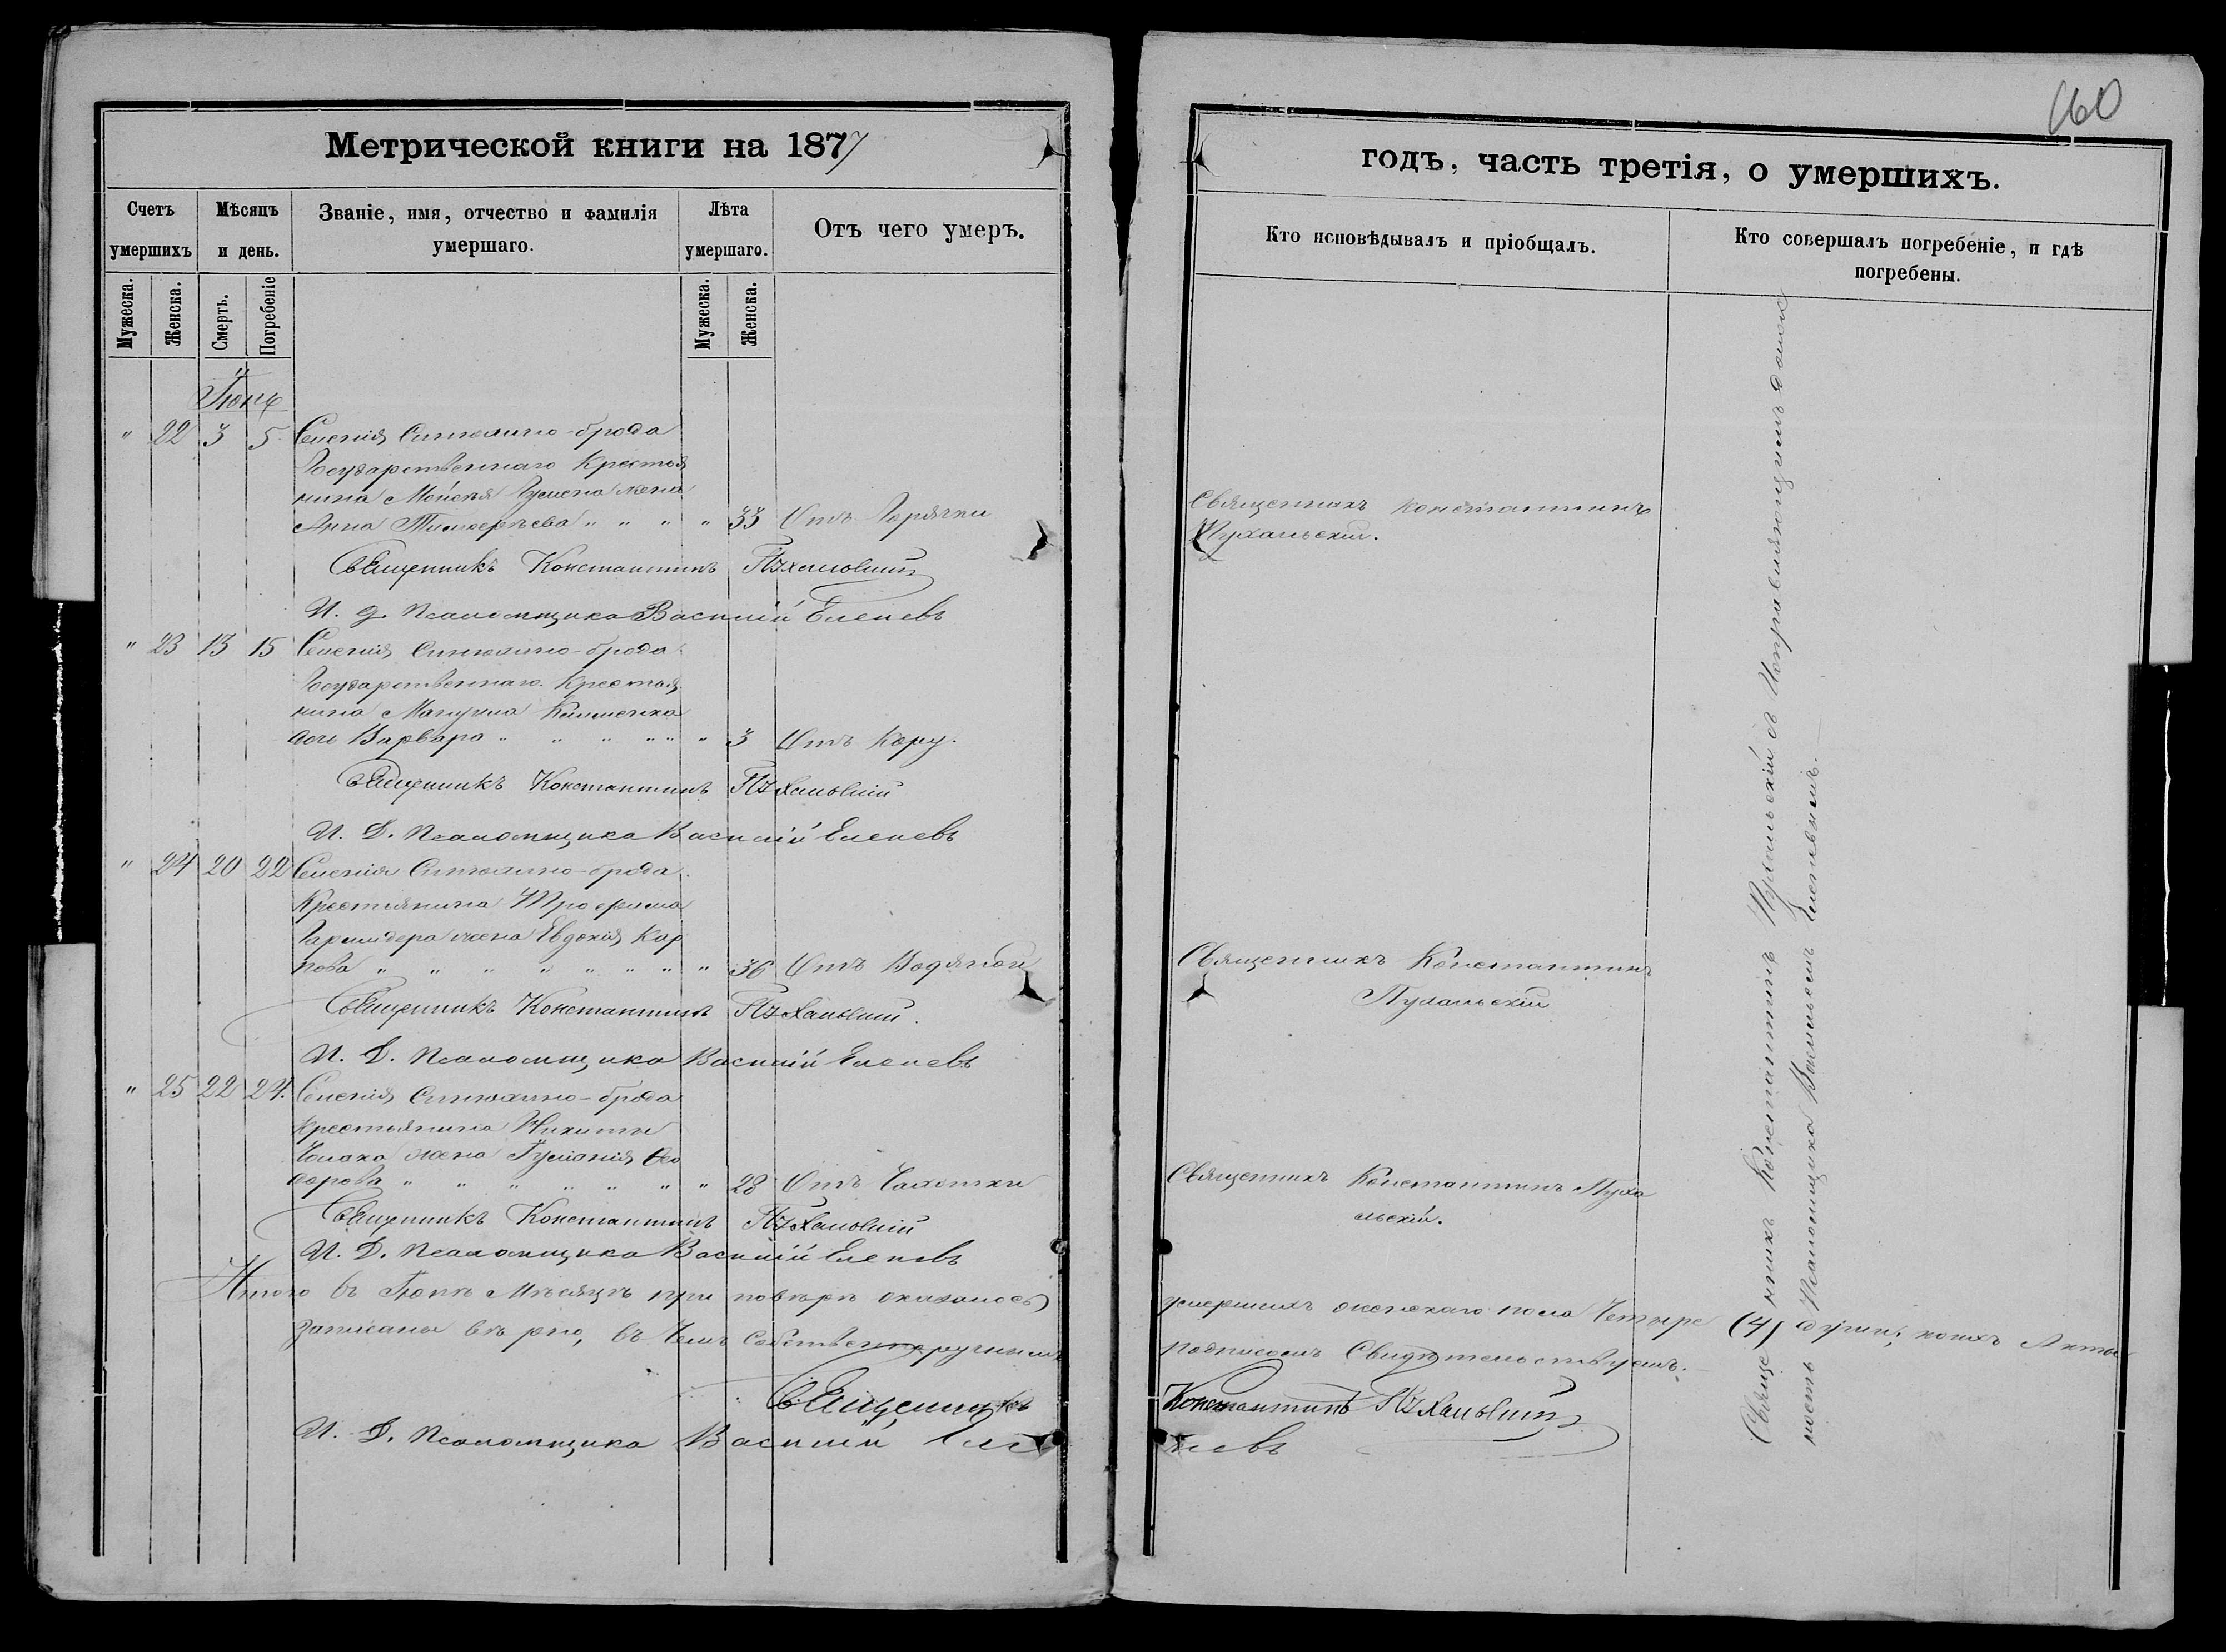 160
Метрической книги на 1877
годъ, часть третія, о умершихъ.
Счетъ умершихъ
Мѣсяцъ и день.
Званіе, имя, отчество и фамилія умершаго.
Лѣта умершаго.
Отъ чего умеръ.
Кто исповѣдывалъ и пріобщалъ.
Кто совершалъ погребеніе, и гдѣ погребены.
Мужеска.
Женска.
Смерть.
Погребеніе
Мужеска.
Женска.
Іюнь
" 22 3 5 Селенія Синюхино-брода
Государственнаго Крестья
нина Мойсея жена
Анна Тимофѣева " " " " 33 Отъ Горячки
Священникъ Константинъ
Пухальскій.
Священникъ Константинъ Пухальскій
И. д. Псаломщика Василій Еленевъ
" 23 13 15 Селенія Синюхино-брода
Государственнаго Крестья
нина
дочь Варвара " " " " " " 3 Отъ Кору.
Священникъ Константинъ Пухальскій
И. Д. Псаломщика Василій Еленевъ
" 24 20 22 Селенія Синюхино-брода
Крестьянина Трофима
жена Евдокія Кар
пова " " " " " " " " 36 Отъ Водяной
Священникъ Константинъ
Пухальскій
Священникъ Константинъ Пухальскій.
И. Д. Псаломщика Василій Еленевъ
" 25 22 24. Селенія Синюхино-брода
Крестьянина Никиты
жена Ѳео
дорова " " " " " " " 28 Отъ Чахотки
Священникъ Константинъ Пуха
льскій.
Священникъ Константинъ Пухальскій
И. Д. Псаломщика Василій Еленевъ
Итого въ Іюнѣ Мѣсяцѣ при повѣркѣ оказалось умершихъ женскаго пола Четыре (4) души; коихъ Акты
записаны вѣрно, въ чемъ собственноручнымъ подписомъ Свидѣтельствуемъ.
Священникъ Константинъ Пухальскій
И. Д. Псаломщика Василій Еленевъ
Священникъ Константинъ Пухальскій съ Исправляющимъ долж
ность Псаломщика Василіемъ Еленевымъ.